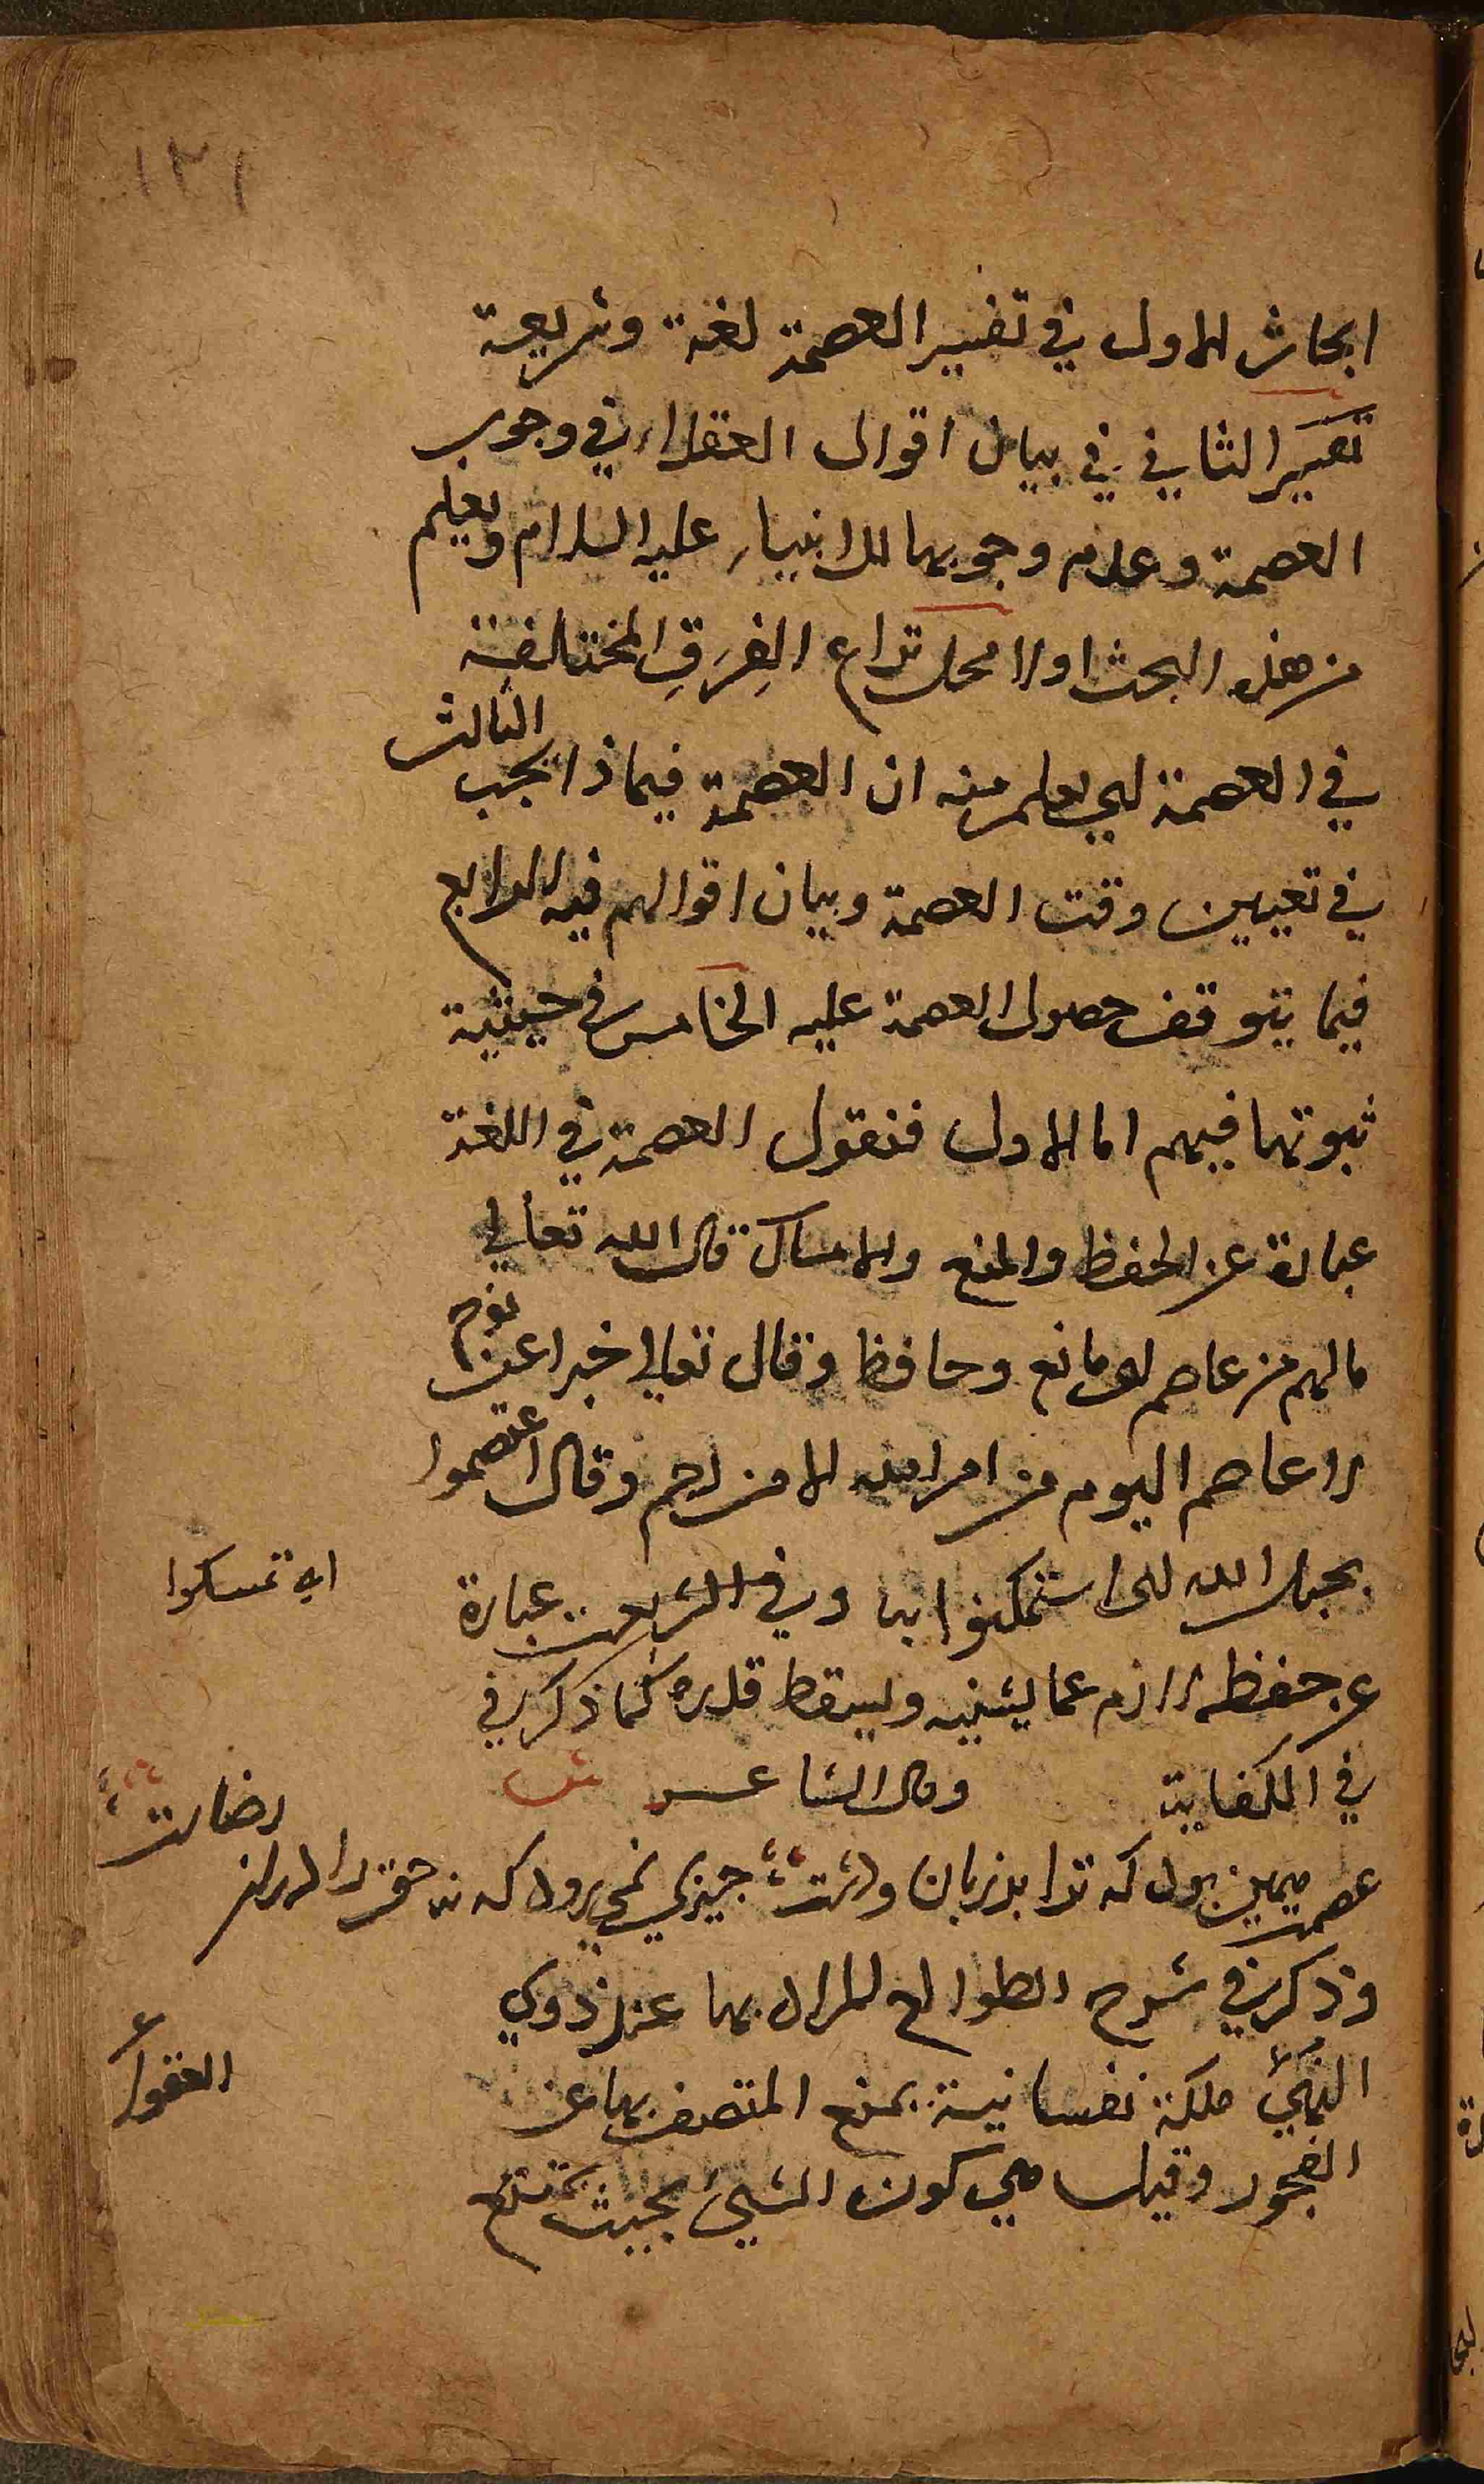 ١٣١
ابحاث الاول في تفسير العصمة لغة وشريعة
تفسير الثاني في بيان اقوال العقلاء في وجوب
العصمة وعدم وجوبها للانبياء عليه السلام ويعلم
من هذه البحث اولا محل نزاع الفِرَقِ المختلفة
في العصمة لكي يعلم منه ان العصمة فيماذا يجب الثالث
في تعيين وقت العصمة وبيان اقوالهم فيه الرابع
فيما يتوقف حصول العصمة عليه الخامس في حيثية
ثبوتها فيهم اما الاول فنقول العصمة في اللغة
عبارة عن الحفظ والمنع والامساك قال الله تعالي
مالهم من عاصم اى مانع وحافظ وقال تعالي خبرا عن نوح
لا عاصم اليوم من امر الله الا من رحم وقال اعتصموا
بحبل الله اى استمكنوا بها وفي الشريعة عبارة
اي تمسكوا
عن حفظه لازم عما يشينه ويسقط قدره كما ذكر في
في الكفاية وقال الشاعر
عصمت همين بود كه ترا بد زبان وشت جيزي نمي رود كه نه حق را در
رضاست
وذكر في شرح الطوالع المراد بها عند ذوي
النهيٰ ملكة نفسانية يمنع المتصف بها عن
العقول
الفجور وقيل هي كون الشيئ بحيث يمتنع